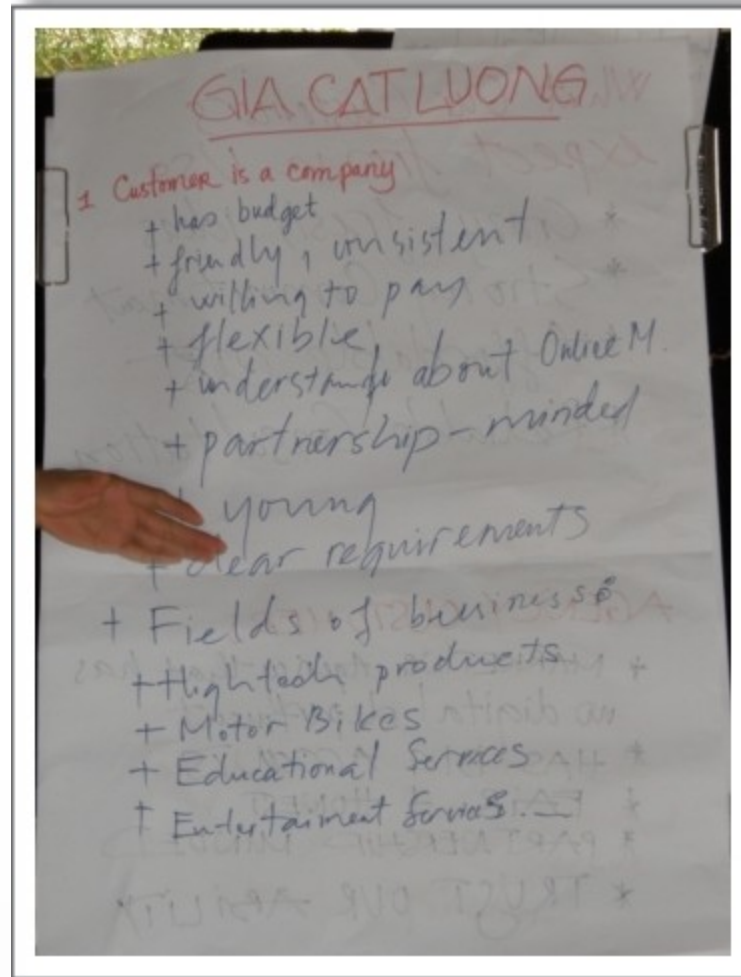 GIA CAT LUONG
1 Customer is a company
+ has budget
+ friendly, consistent
+ willing to pay
+ flexible
+ understands about Online M.
+ partnership-minded
+ young
+ clear requirements
+ Fields of business
+ Hightech products
+ Motor Bikes
+ Educational Services
+ Entertaiment Services.